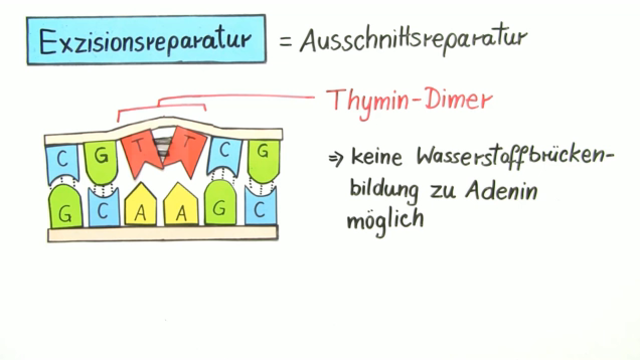 Exzisionsreparatur = Ausschnittsreparatur
Thymin-Dimer
C G T T C G
G C A A G C
⇒ keine Wasserstoffbrücken-
bildung zu Adenin
möglich